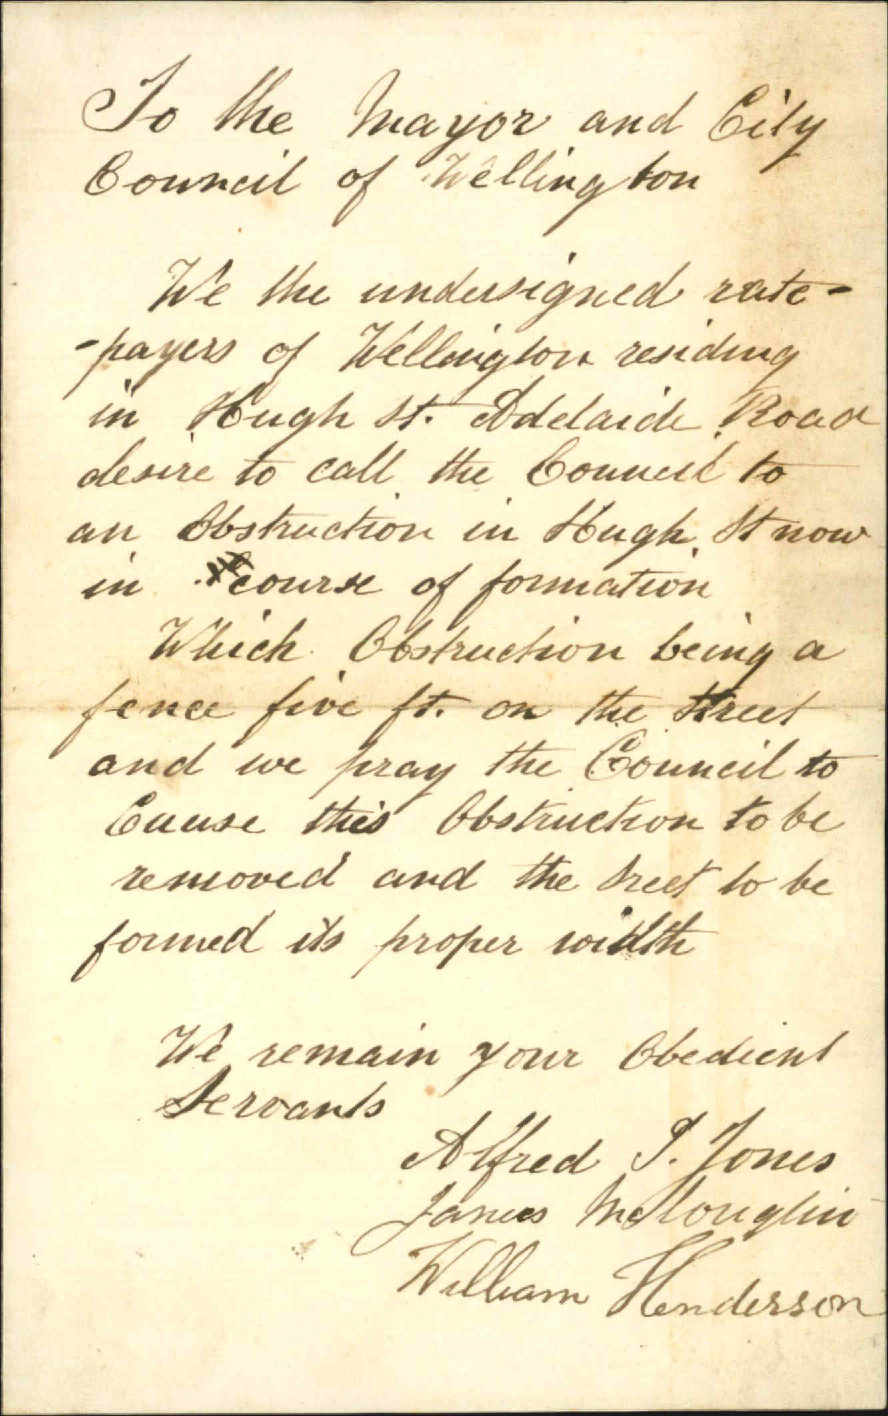 To the Mayor and City
Council of Wellington
We the undersigned rate-
-payers of Wellington residing
in Hugh St. Adelaide Road
desire to call the Council to
an Obstruction in Hugh St now
in course of formation
Which Obstruction being a
fence five ft. on the street
and we pray the Council to
Cause this Obstruction to be
removed and the sreet to be
formed its proper width
We remain your Obedient
Servants
Alfred J. Jones
James McLoughlin
William Henderson